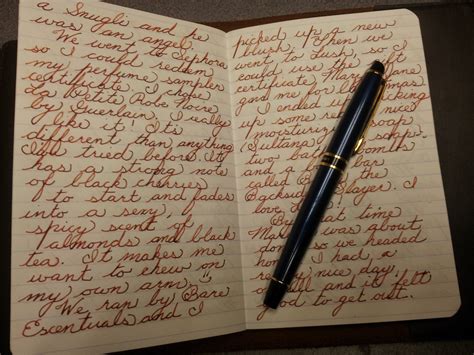 a Snugli and he
was an angel.
We went to Sephora
so I could redeem
my perfume sampler
certificate. I chose
La Petite Robe Noire
by Guerlain. I really
like it. It's
different than anything
I'd tried before. It
has a strong note
of black cherries
to start and fades
into a sexy,
spicy scent of
almonds and black
tea. It makes me
want to chew on
my own arm.
We rap by Bare
Escentuals and I
picked up a new
blush. Then we
went to Lush, so I
could use the gift
certificate Mary Jane
gave me for
I ended up
up some nice
moisturizing soap
(Sultana soap.
two bath bombs
and a bar
called
Backside Slayer. I
love
By that time
was about
done so we headed
home. I had a
really nice day,
and it felt
good to get out.